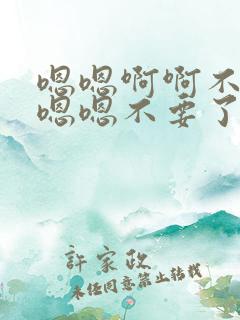 嗯嗯啊啊不
嗯嗯不要了
許家政
未经同意禁止转载